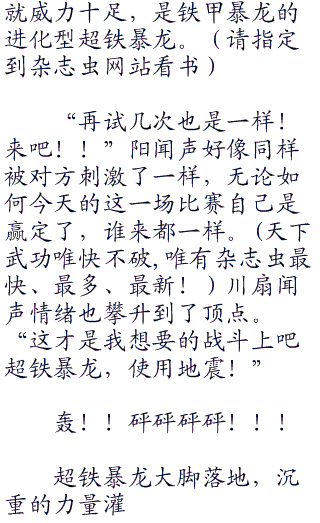 就威力十足，是铁甲暴龙的
进化型超铁暴龙。（请指定
到杂志虫网站看书）
“再试几次也是一样！
来吧！！”阳闻声好像同样
被对方刺激了一样，无论如
何今天的这一场比赛自己是
赢定了，谁来都一样。(天下
武功唯快不破,唯有杂志虫最
快、最多、最新！）川扇闻
声情绪也攀升到了顶点。
“这才是我想要的战斗上吧
超铁暴龙，使用地震！”
轰！！砰砰砰砰！！！
超铁暴龙大脚落地，沉
重的力量灌